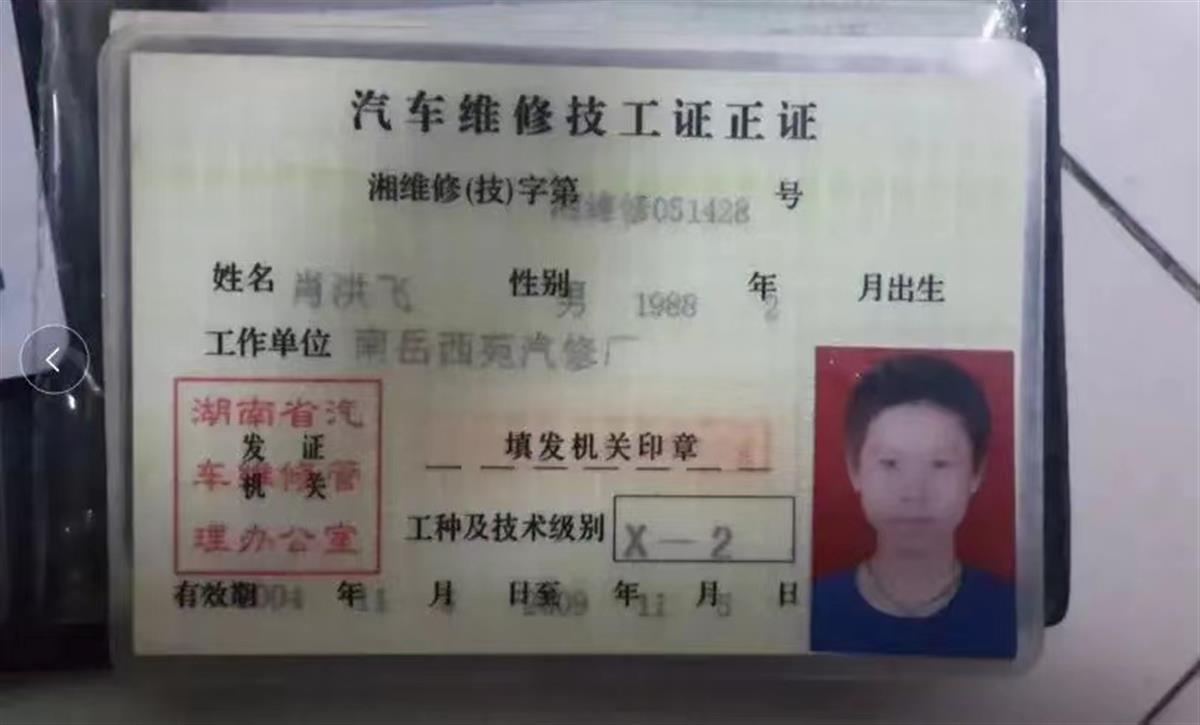 汽车维修技工证正证
湘维修(技)字第湘维修051428号
姓名 肖洪飞 性别 男 1988年2月出生
工作单位 南岳西苑汽修厂
湖南省汽车维修管理办公室
发证机关
填发机关印章
工种及技术级别 X-2
有效期2004年11月4日至2009年11月5日